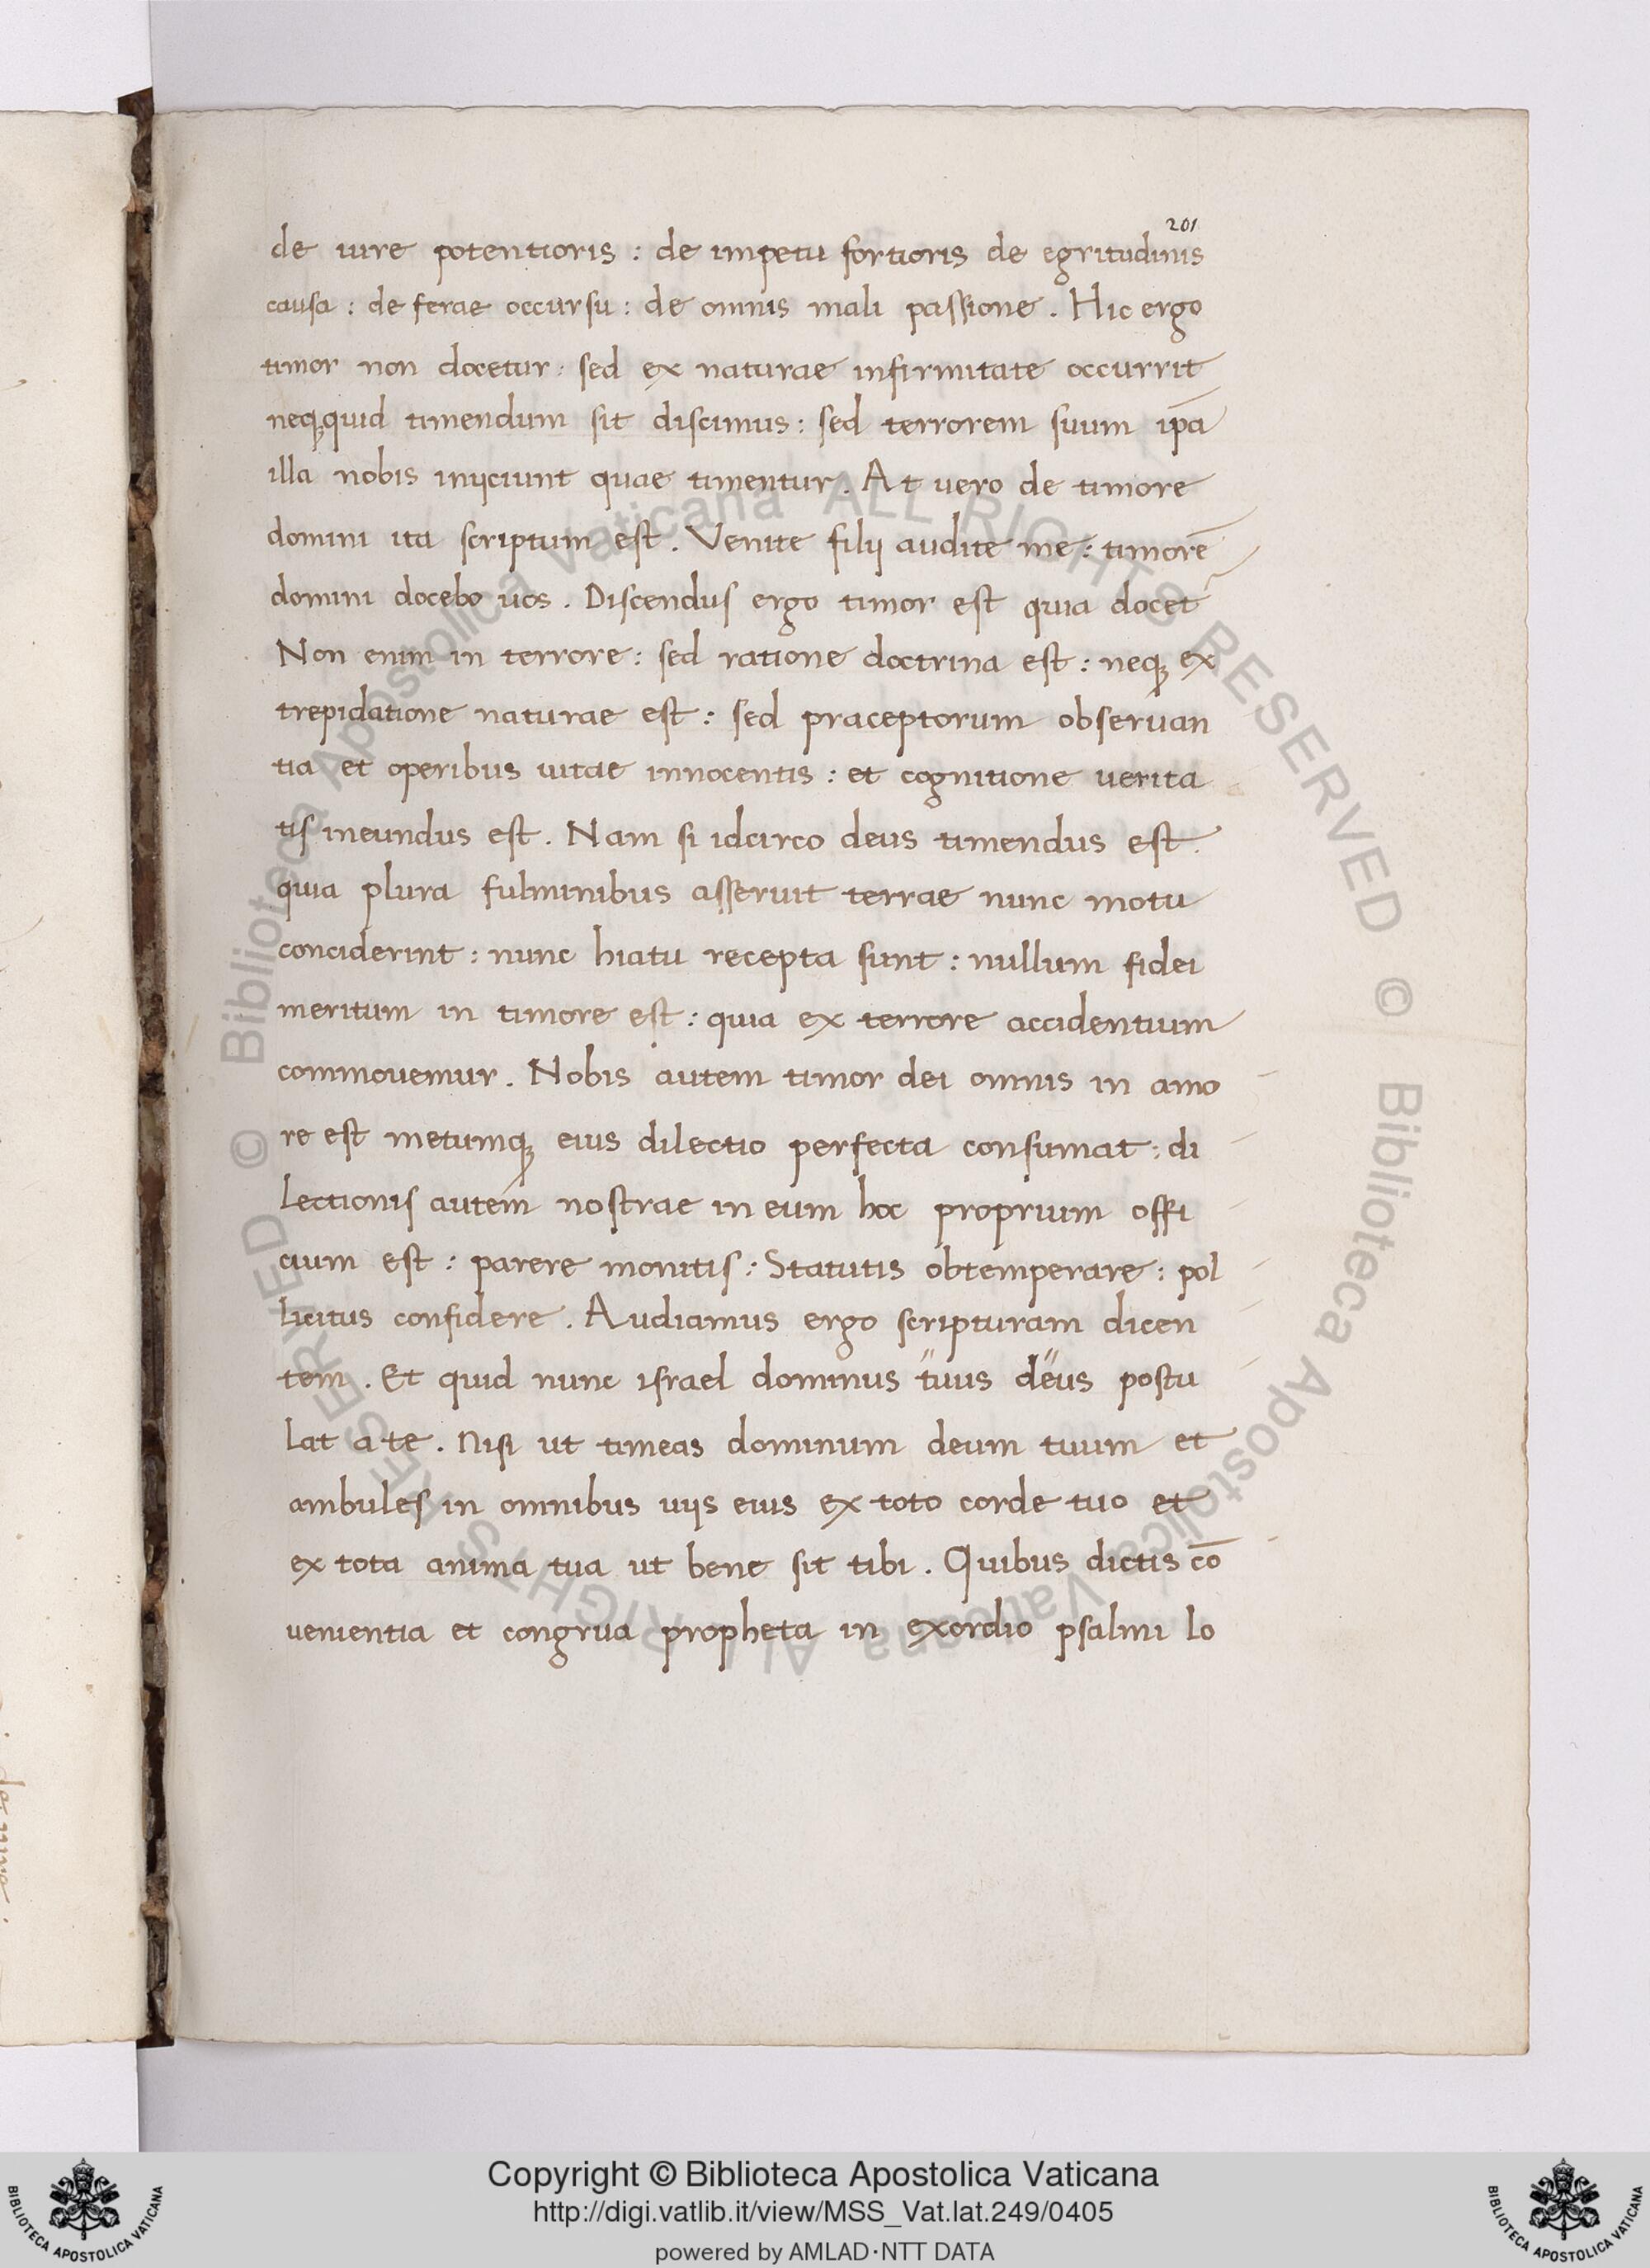 201
de iure potentioris : de impetu fortioris de egritudinis
causa : de ferae occursu : de omnis mali passione . Hic ergo
timor non docetur : sed ex naturae infirmitate occurrit
neq; quid timendum sit discimus : sed terrorem suum ip̄a
illa nobis iniiciunt quae timentur . At vero de timore
domini ita scriptum est . Venite filij audite me : timorē
domini docebo uos . Discendus ergo timor est quia docet᷑
Non enim in terrore : sed ratione doctrina est : neq; ex
trepidatione naturae est : sed praeceptorum obseruan
tia et operibus uitae innocentis : et cognitione uerita
tis ineundus est . Nam si idcirco deus timendus est
quia plura fulminibus asseruit terrae nunc motu
conciderint : nunc hiatu recepta sunt : nullum fidei
meritum in timore est : quia ex terrore accidentium
commouemur . Nobis autem timor dei omnis in amo
re est metumq; eius dilectio perfecta consumat : di
lectionis autem nostrae in eum hoc proprium offi
cium est : parere monitis : Statutis obtemperare : pol
licitus confidere . Audiamus ergo scripturam dicen
tem . Et quid nunc israel dominus ̋tuus d̋eus postu
lat a te . Nisi ut timeas dominum deum tuum et
ambules in omnibus uijs eius ex toto corde tuo et
ex tota anima tua ut bene sit tibi . Quibus dictis cō
uenientia et congrua propheta in exordio psalmi lo
© Biblioteca Apostolica Vaticana ALL RIGHTS RESERVED
© Biblioteca Apostolica Vaticana ALL RIGHTS RESERVED
Copyright © Biblioteca Apostolica Vaticana
http://digi.vatlib.it/view/MSS_Vat.lat.249/0405
powered by AMLAD·NTT DATA
BIBLIOTECA APOSTOLICA VATICANA
BIBLIOTECA APOSTOLICA VATICANA